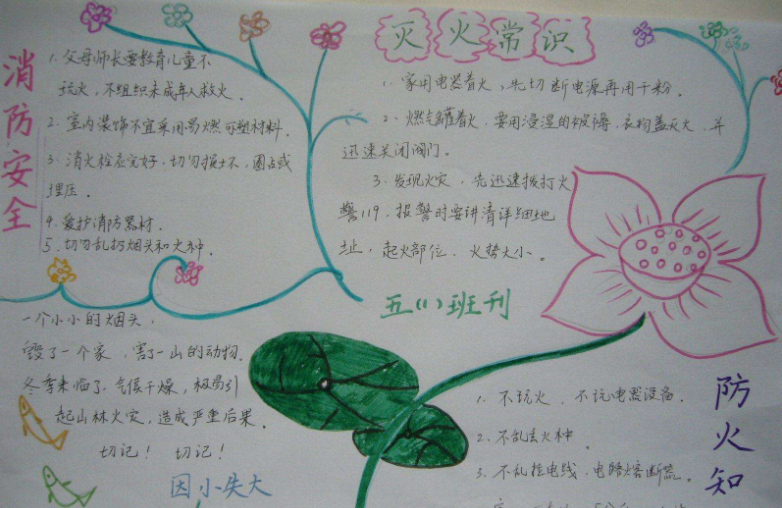 消防安全
1. 父母师长要教育儿童不
玩火，不组织未成年人救火。
2. 室内装饰不宜采用易燃可塑材料。
3. 消火栓应完好，切勿损坏、圈占或
埋压。
4. 爱护消防器材.
5. 切勿乱扔烟头和火种.
灭火常识
1. 家用电器着火，先切断电源再用干粉.
2、燃气罐着火，要用浸湿的被褥、衣物盖灭火，并
迅速关闭阀门。
3. 发现火灾、先迅速拨打火
警119，报警时要讲清详细地
址、起火部位、火势大小。
五(1)班刊
一个小小的烟头，
毁了一个家，害了一山的动物.
冬季来临了，气候干燥，极易引
起山林火灾，造成严重后果.
切记！ 切记！
因小失大
防火知
1. 不玩火、不玩电器设备.
2. 不乱丢火种.
3. 不乱拉电线，电路熔断